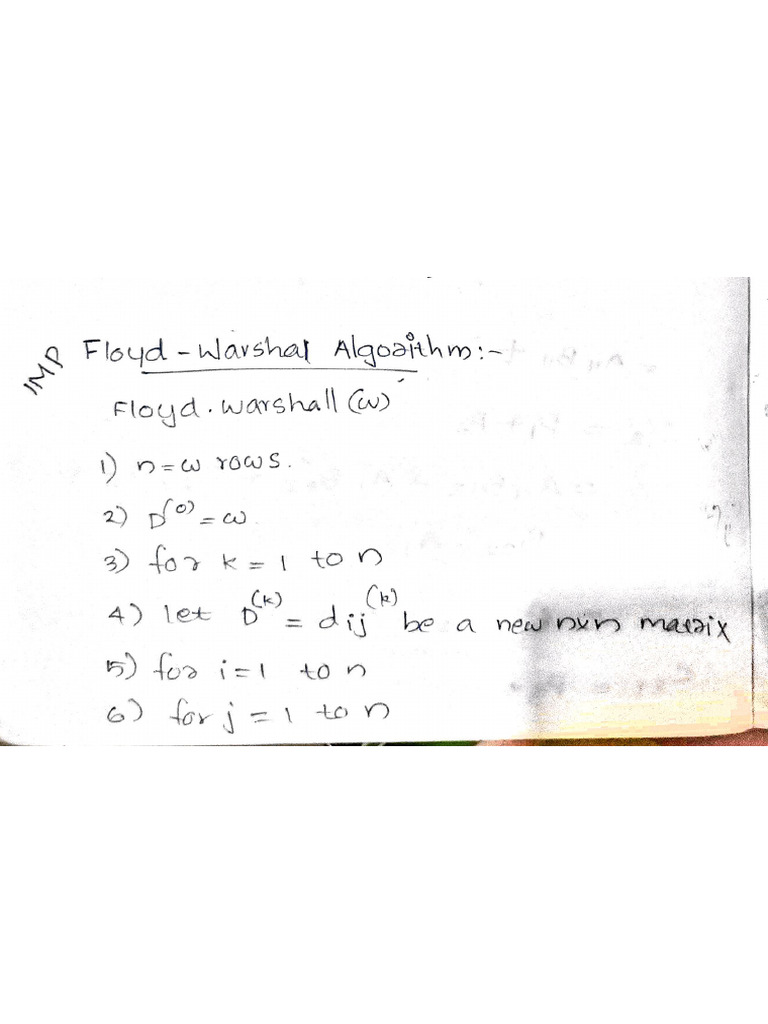 IMP Floyd - Warshal Algorithm :-
Floyd. warshall (w)
1) n = w rows.
2) D(0) = w
3) for k = 1 to n
4) let D(k) = dij(k) be a new nxn matrix
5) for i = 1 to n
6) for j = 1 to n